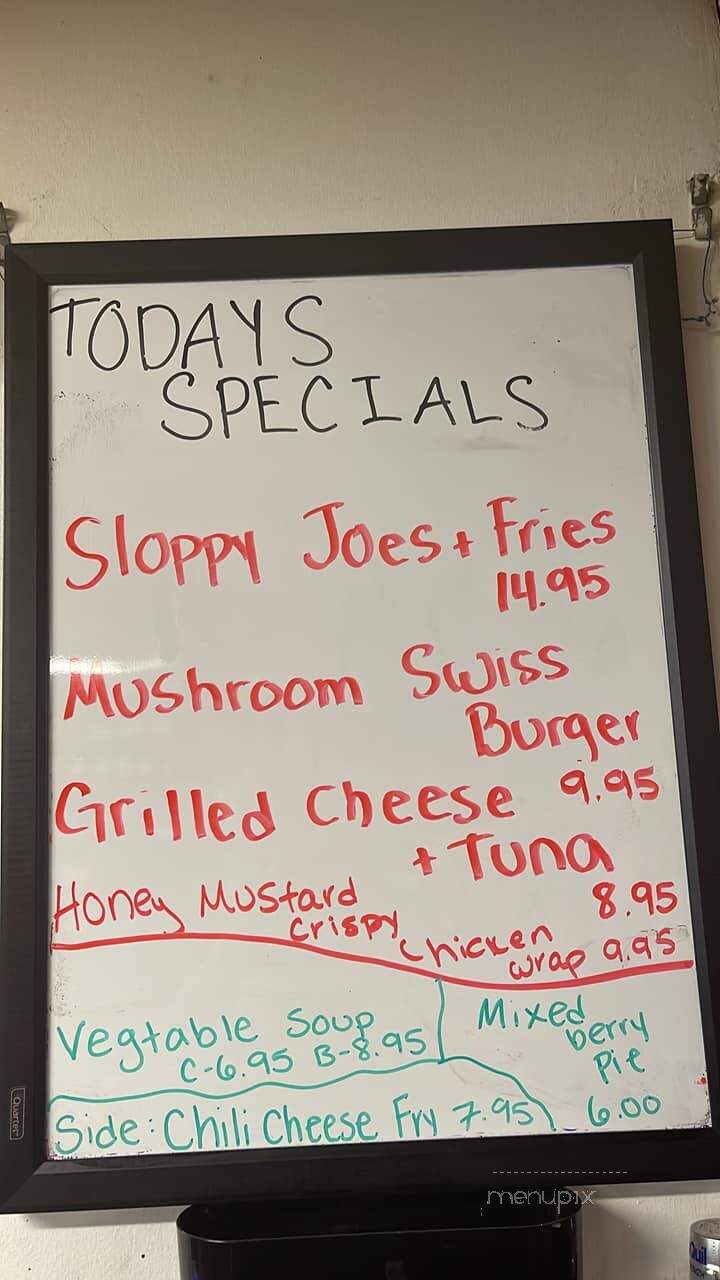 TODAYS
SPECIALS
Sloppy Joes + Fries
14.95
Mushroom Swiss
Burger
9.95
Grilled Cheese
+ Tuna
8.95
Honey Mustard
crispy
chicken
wrap 9.95
Vegtable Soup
C-6.95 B-8.95
Mixed
berry
Pie
6.00
Side: Chili Cheese Fry 7.95
Quartet
menupix
Quil